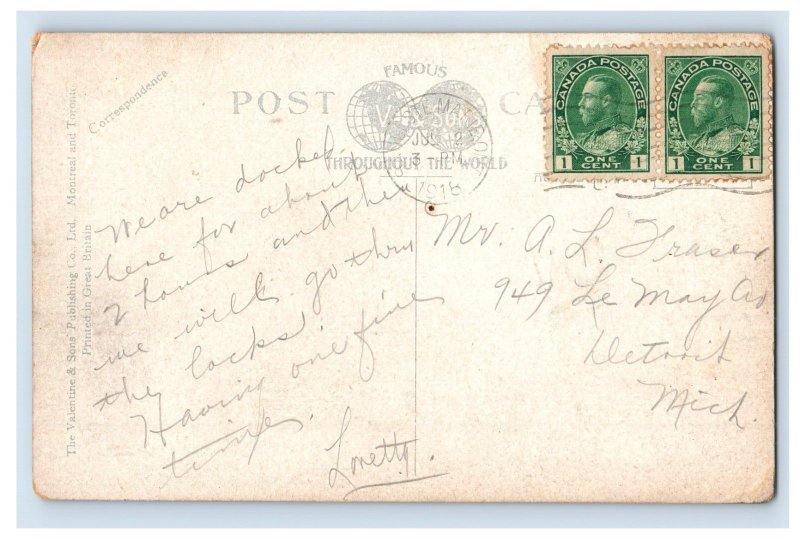 The Valentine & Sons' Publishing Co., Ltd. Montreal and Toronto
Printed in Great Britain
Correspondence
POST
FAMOUS
THROUGHOUT THE WORLD
3 PM
1918
CANADA POSTAGE
1 ONE CENT 1
CANADA POSTAGE
1 ONE CENT 1
We are docked
here for about
2 hours and then
we will go thru
the locks.
Having one fine
time.
Loretta.
Mr. A. L. Fraser
949 Le May Av
Detroit
Mich.